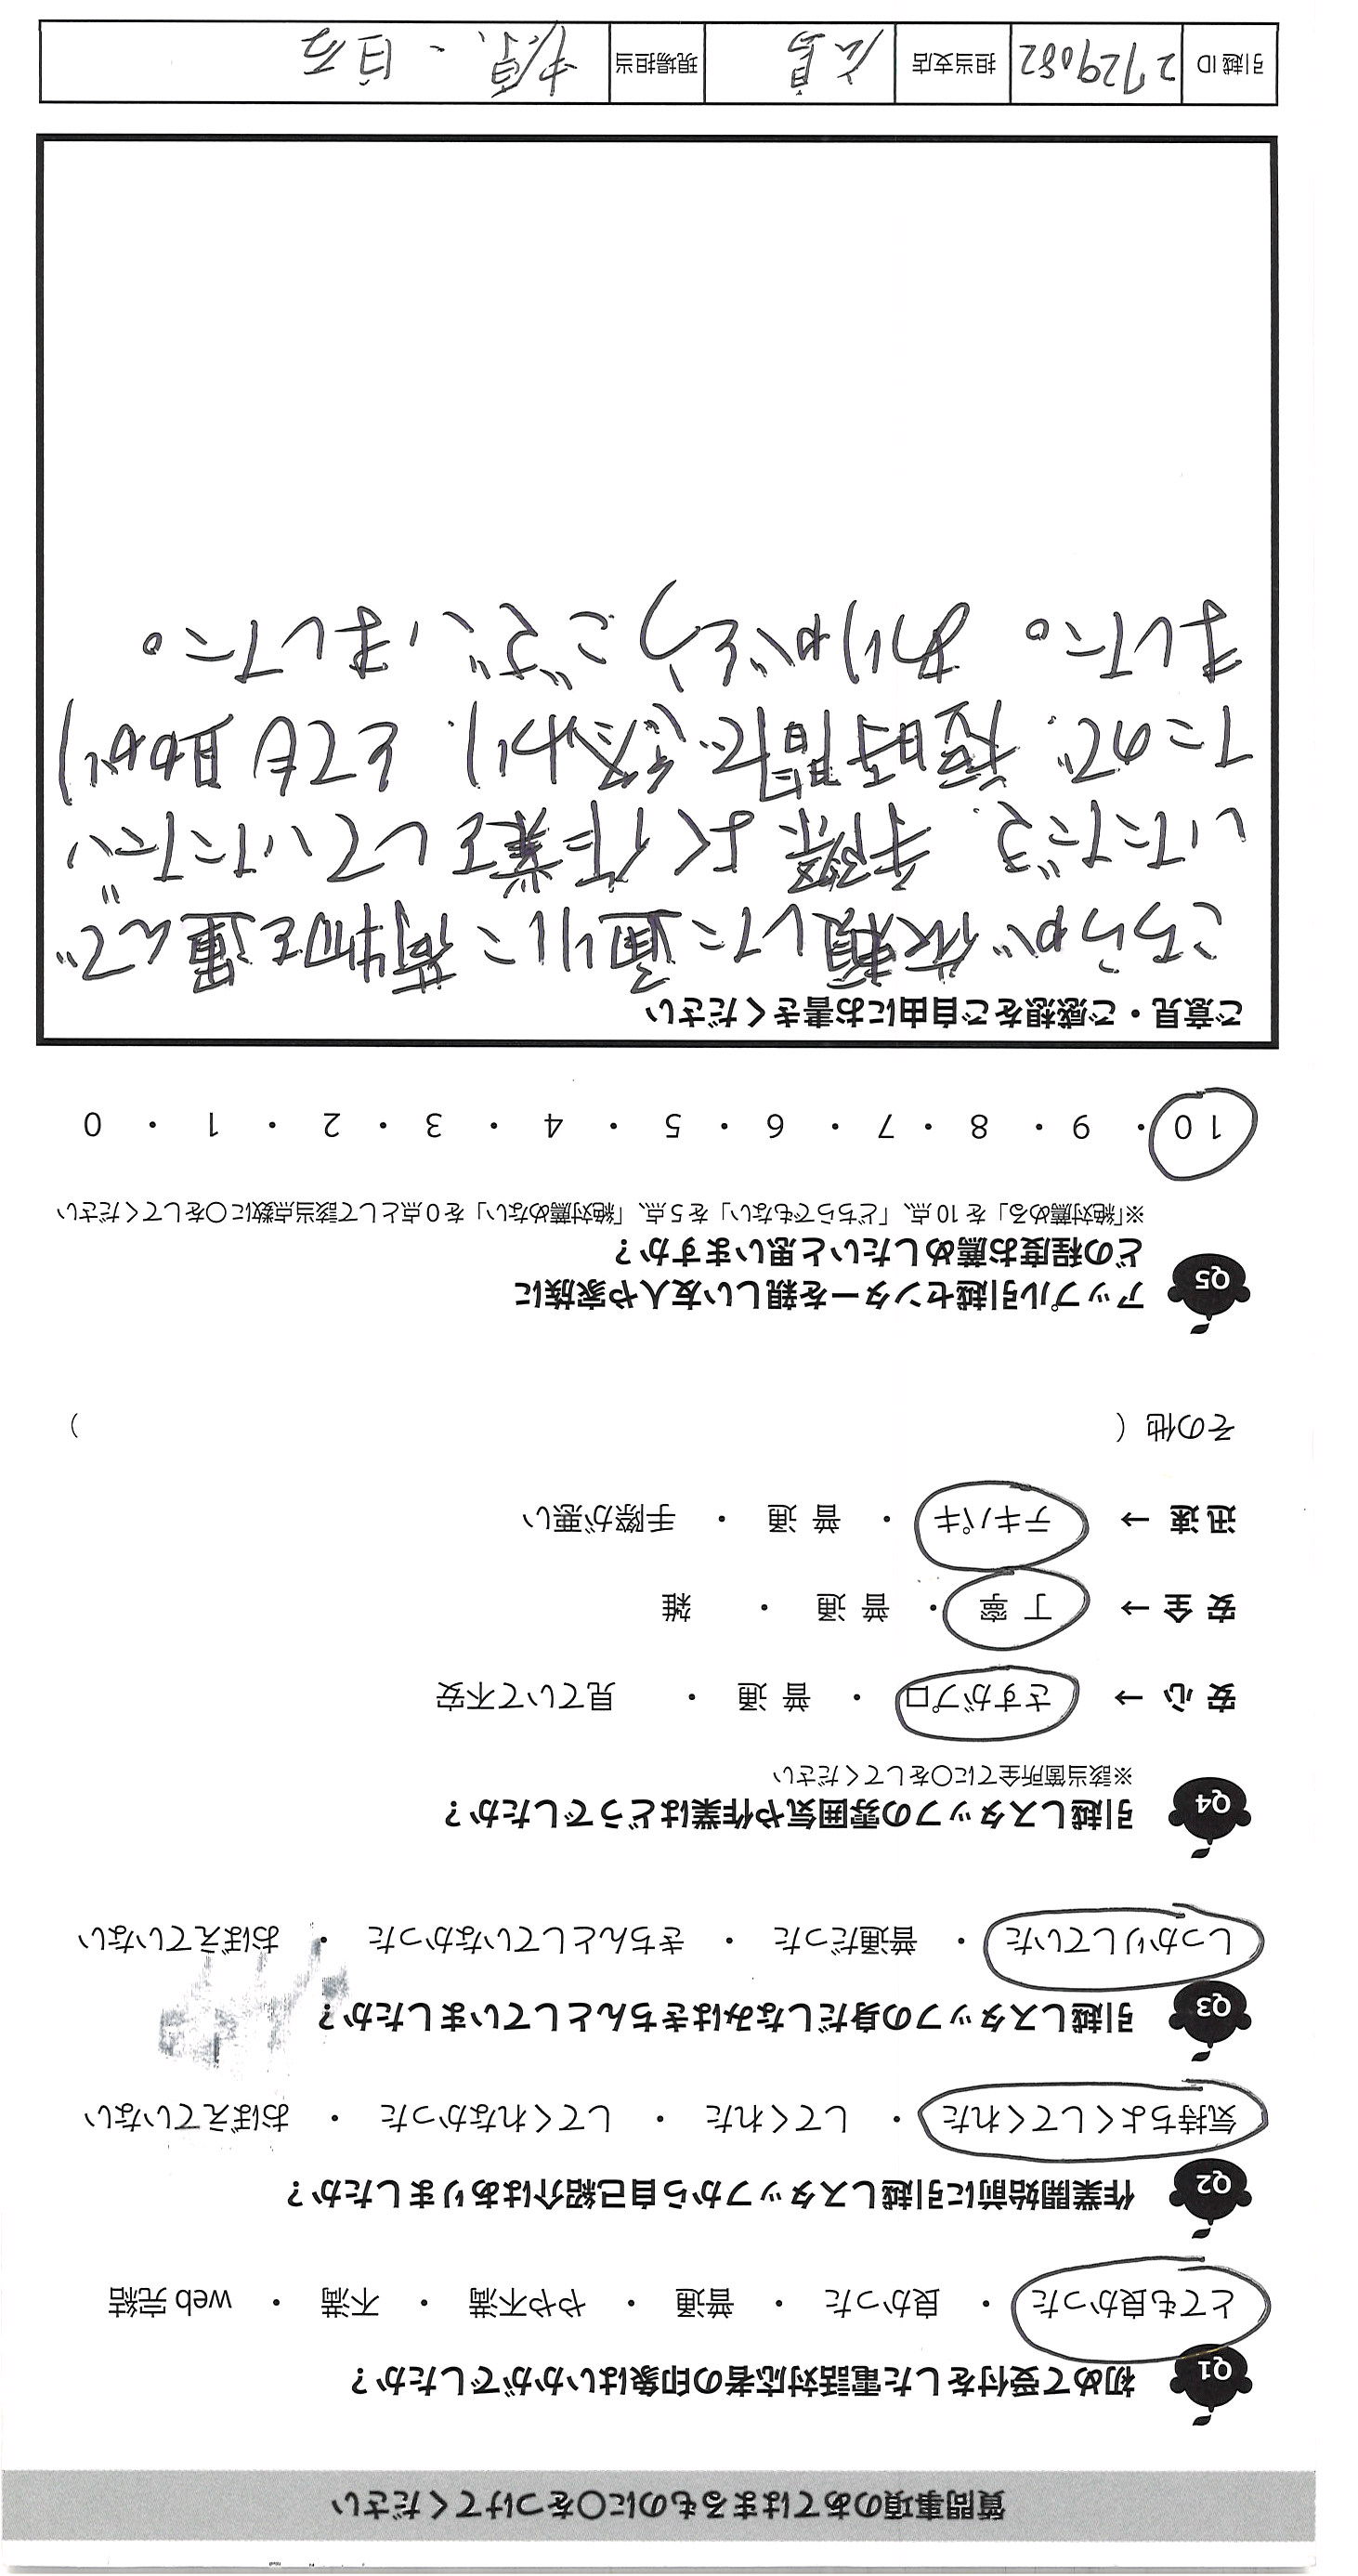 質問事項のあてはまるものに〇をつけてください
Q1 初めて受付をした電話対応者の印象はいかがでしたか？
とても良かった ・ 良かった ・ 普通 ・ やや不満 ・ 不満 ・ web 完結
Q2 作業開始前に引越しスタッフから自己紹介はありましたか？
気持ちよくしてくれた ・ してくれた ・ してくれなかった ・ おぼえていない
Q3 引越しスタッフの身だしなみはきちんとしていましたか？
しっかりしていた ・ 普通だった ・ きちんとしていなかった ・ おぼえていない
Q4 引越しスタッフの雰囲気や作業はどうでしたか？
※該当箇所全てに〇をしてください
安心 → さすがプロ ・ 普通 ・ 見ていて不安
安全 → 丁寧 ・ 普通 ・ 雑
迅速 → テキパキ ・ 普通 ・ 手際が悪い
その他（ ）
Q5 アップル引越センターを親しい友人や家族に
どの程度お薦めしたいと思いますか？
※「絶対薦める」を10点、「どちらでもない」を5点、「絶対薦めない」を0点として該当点数に〇をしてください
10 ・ 9 ・ 8 ・ 7 ・ 6 ・ 5 ・ 4 ・ 3 ・ 2 ・ 1 ・ 0
ご意見・ご感想をご自由にお書きください
こちらが依頼した通りに荷物を運んで
いただき、手際よく作業をしていただい
たので、短時間で終わり、とても助かり
ました。ありがとうございました。
引越ID 2729082 担当支店 広島 現場担当